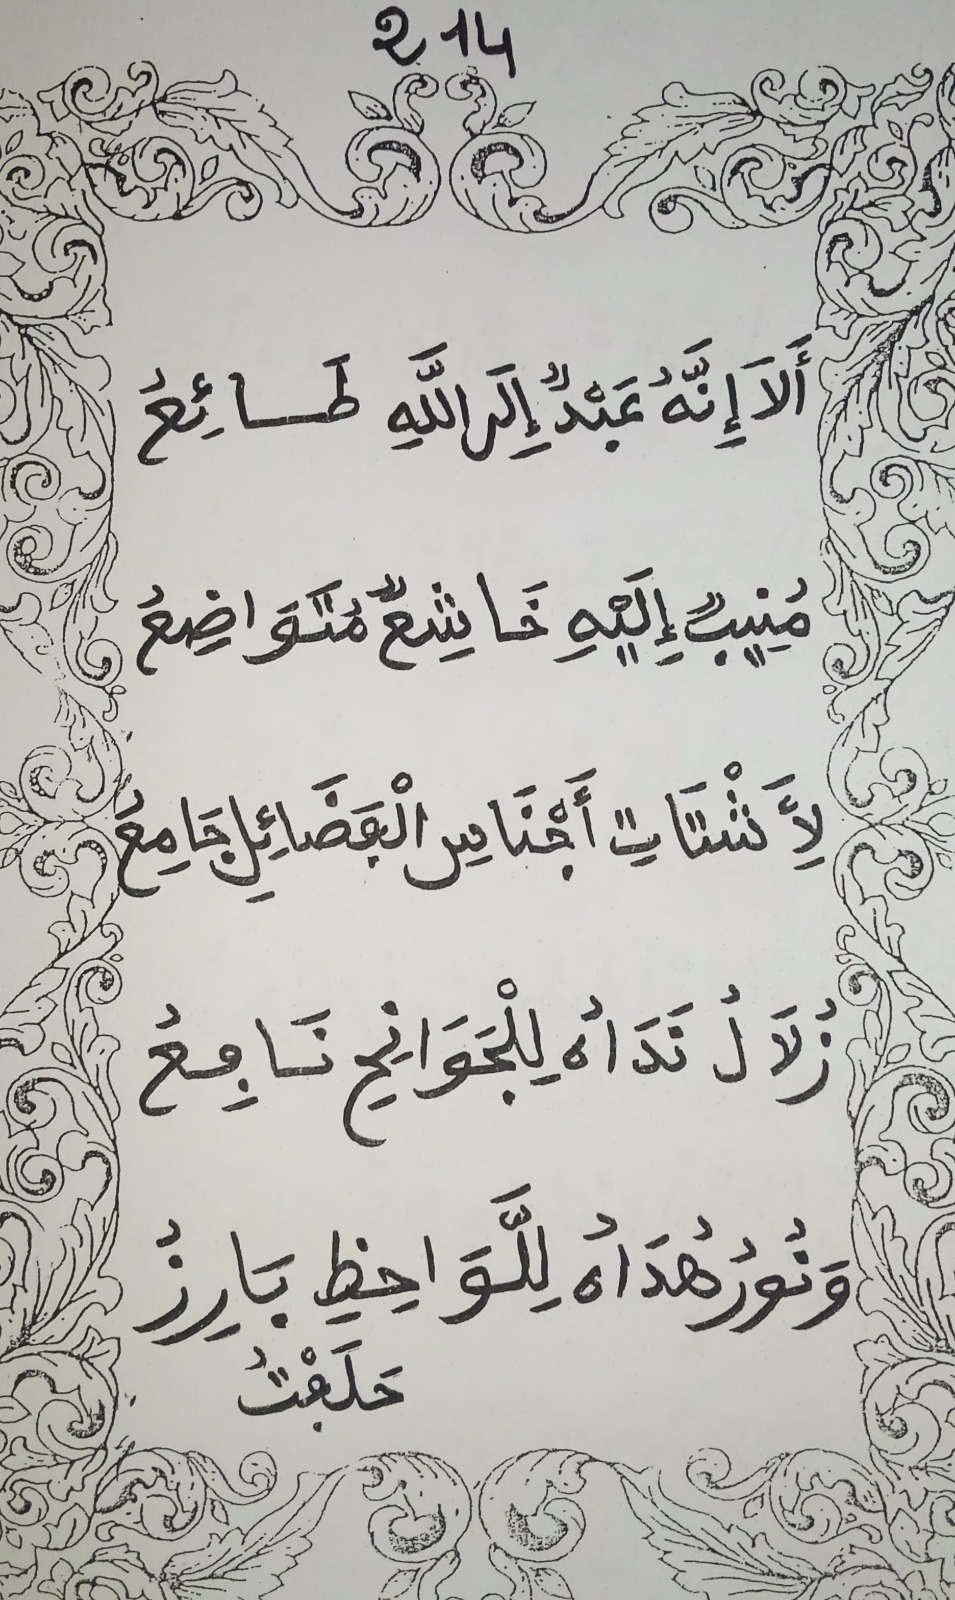 214
أَلاَ إِنَّهُ عَبْدٌ إِلَى اللَّهِ طَائِعُ
مُنِيبٌ إِلَيْهِ خَاشِعٌ مُتَوَاضِعُ
لِأَشْتَاتِ أَجْنَاسِ الْڢَضَائِلِ جَامِعُ
زُلاَلُ نَدَاهُ لِلْجَوَانِحِ نَاڢِعُ
وَنُورُ هُدَاهُ لِلَّوَاحِظِ بَارِزُ
حَلَڢْتُ